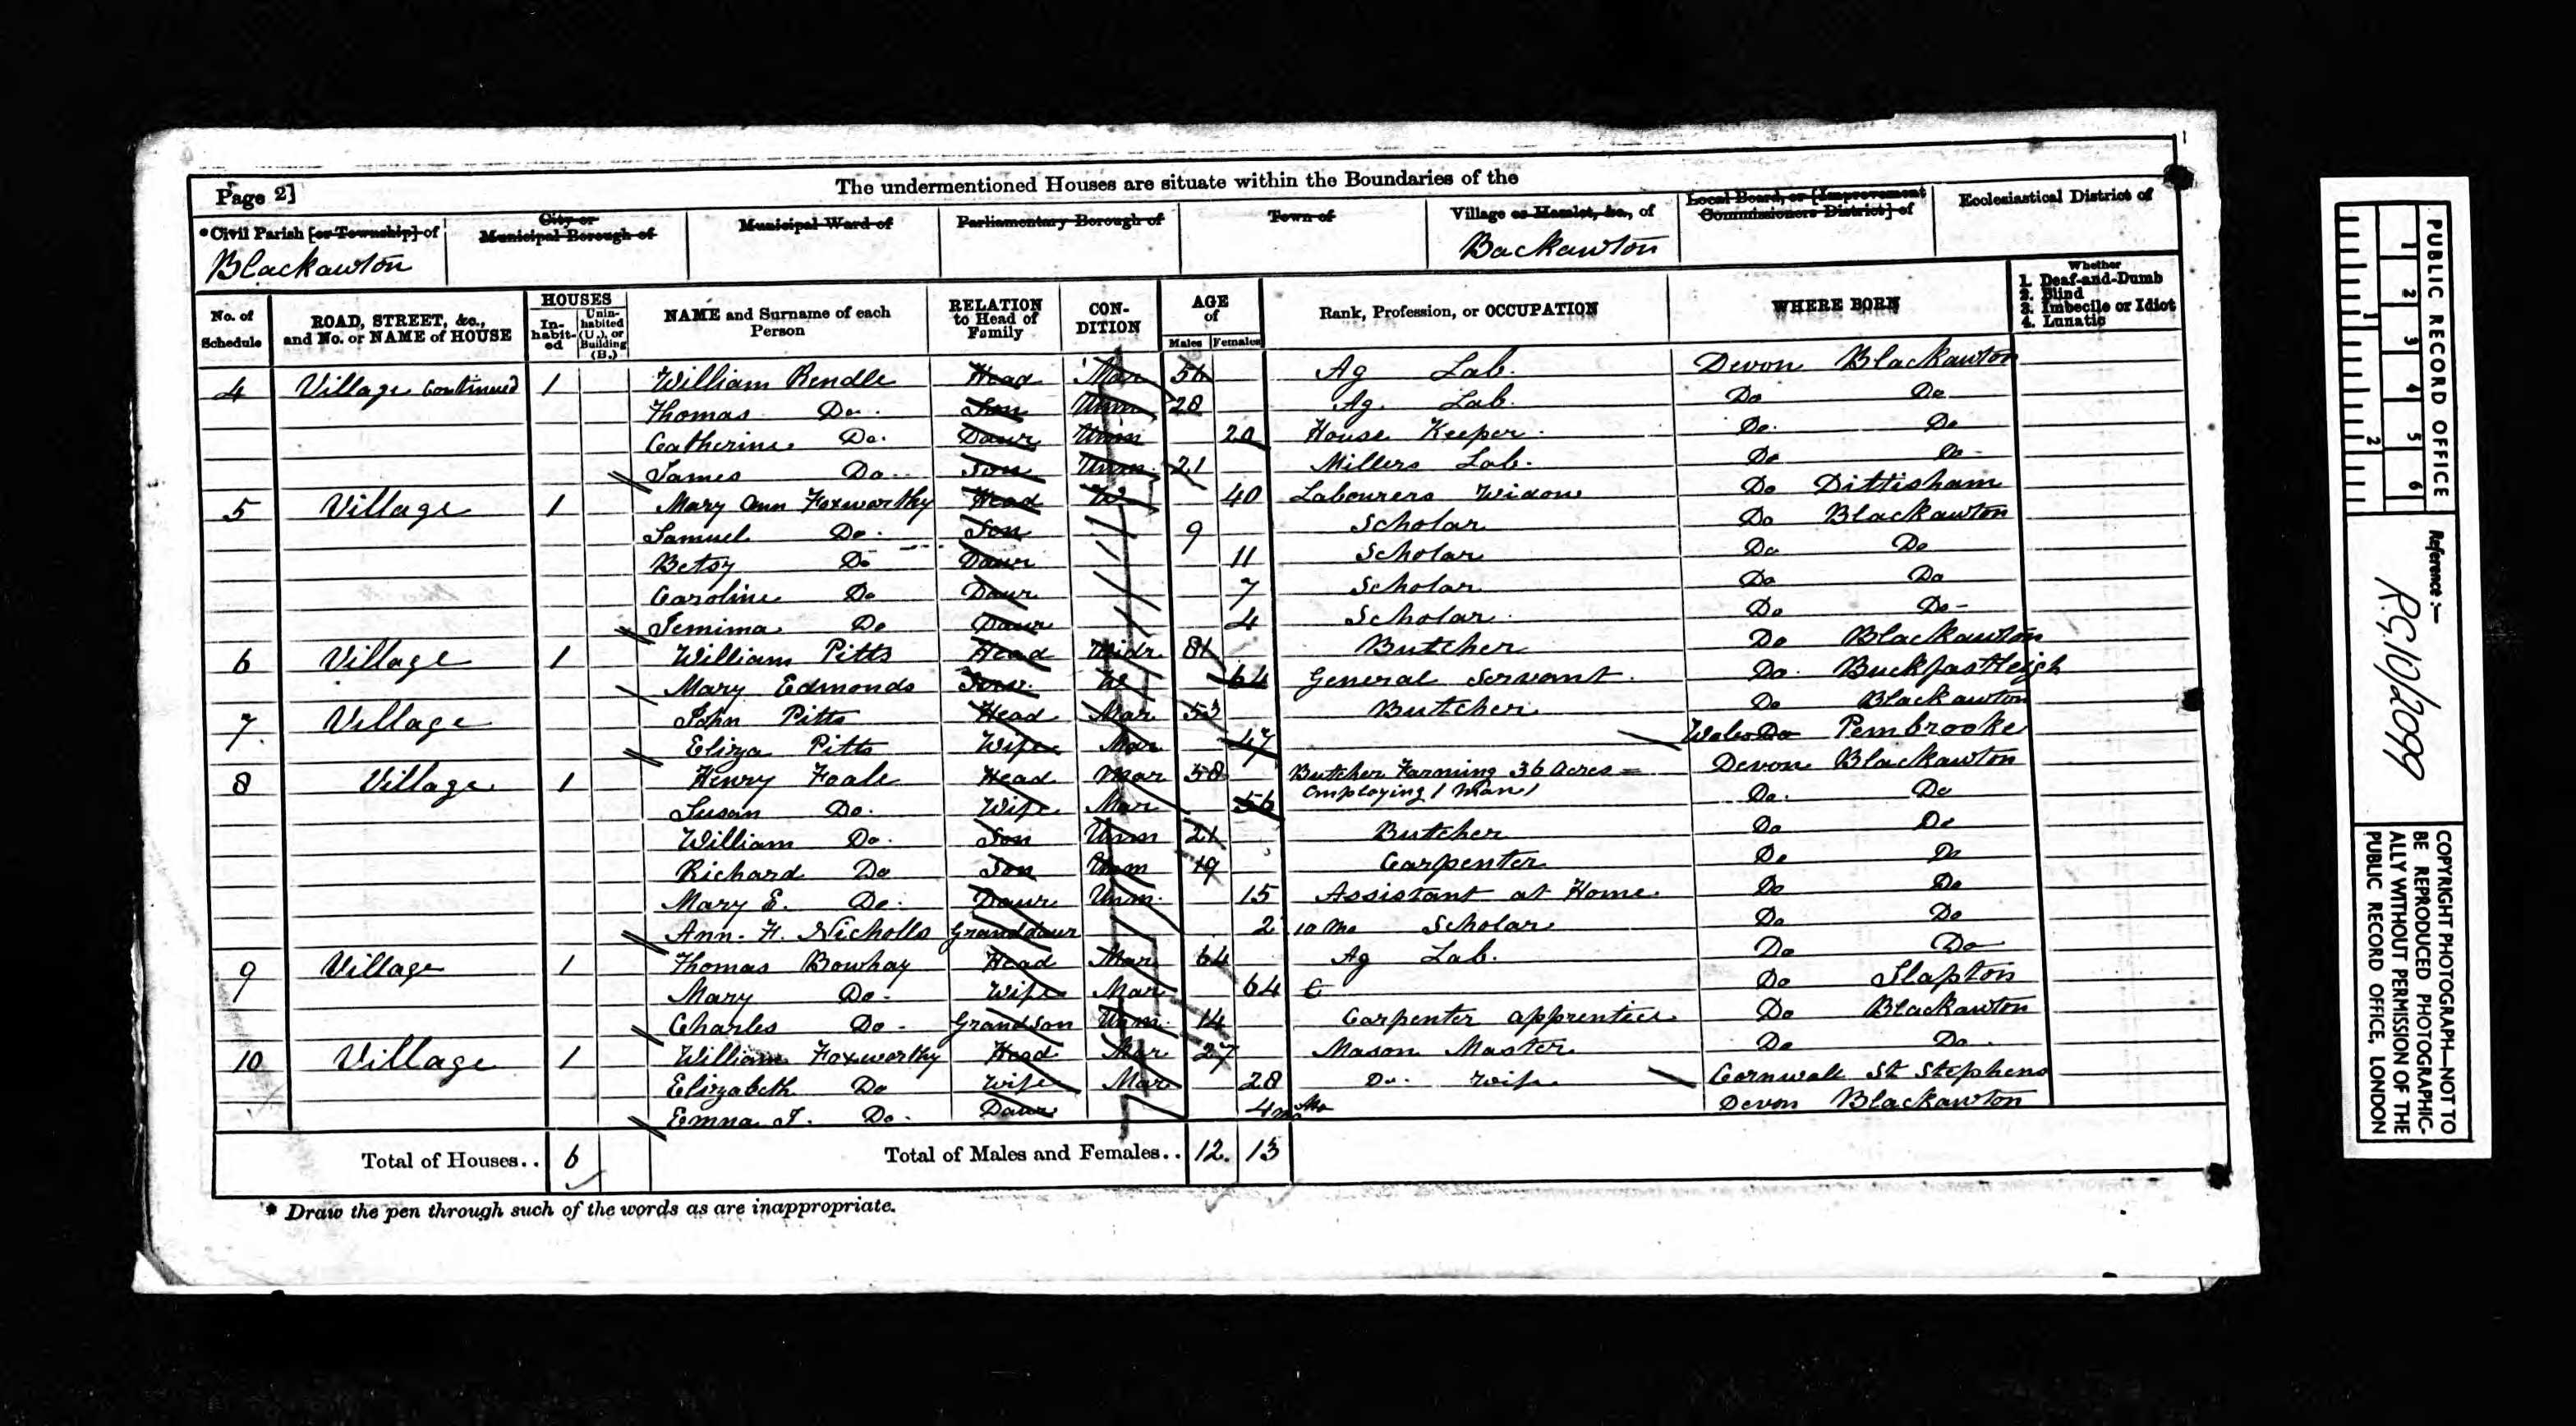 Page 2]
The undermentioned Houses are situate within the Boundaries of the
*Civil Parish [or Township] of
City or Municipal Borough of
Municipal Ward of
Parliamentary Borough of
Town of
Village or Hamlet, &c., of
Local Board, or [Improvement Commissioners District] of
Ecclesiastical District of
Blackawton
Backawton
No. of Schedule
ROAD, STREET, &c., and No. or NAME of HOUSE
HOUSES
In-habit-ed
Unin-habited (U.), or Building (B.)
NAME and Surname of each Person
RELATION to Head of Family
CON-DITION
AGE of
Males Females
Rank, Profession, or OCCUPATION
WHERE BORN
Whether
1. Deaf-and-Dumb
2. Blind
3. Imbecile or Idiot
4. Lunatic
4 Village Continued 1 William Rendle Head Mar Ag Lab. Devon Blackawton
Thomas Do. Son Unm 28 Ag. Lab. Do Do
Catherine Do. Daur Unm 20 House Keeper Do. Do
James Do. Son Unm. 21 Millers Lab. Do Do
5 Village 1 Mary Ann Foxworthy Head W 40 Labourers Widow Do Dittisham
Samuel Do. Son 9 Scholar Do Blackawton
Betsy Do Daur 11 Scholar Do Do
Caroline Do Daur 7 Scholar Do Do
Jemima Do Daur 4 Scholar Do Do
6 Village 1 William Pitts Head Widr. 81 Butcher Do Blackawton
Mary Edmonds W 64 General Servant Do. Buckfastleigh
7. Village John Pitts Head Mar 53 Butcher Do Blackawton
Eliza Pitts Wife Mar 47 Wales Do Pembrooke
8 Village 1 Henry Foale Head Mar 58 Butcher Farming 36 Acres = Devon Blackawton
employing 1 Man
Susan Do. Wife Mar 56 Do. Do
William Do. Son Unm 21 Butcher Do Do
Richard Do Son Unm 19 Carpenter Do Do
Mary E. Do. Daur Unm. 15 Assistant at Home Do Do
Ann. H. Nicholls Granddaur 2 10 Mo Scholar Do Do
9 Village 1 Thomas Bowhay Head Mar 64 Ag Lab. Do Do
Mary Do. Wife Mar 64 Do Slapton
Charles Do. Grandson Unm. 14 Carpenter apprentice Do Blackawton
10 Village 1 William Foxworthy Head Mar 27 Mason Master Do Do.
Elizabeth Do Wife Mar 28 Do. Wife Cornwall St Stephens
Emma J. Do. Daur 4 Mo Devon Blackawton
Total of Houses.. 6
Total of Males and Females.. 12. 13
* Draw the pen through such of the words as are inappropriate.
PUBLIC RECORD OFFICE
1 2 3 4 5 6
1 2
Reference :—
R.G.10/2099
COPYRIGHT PHOTOGRAPH—NOT TO
BE REPRODUCED PHOTOGRAPHIC-
ALLY WITHOUT PERMISSION OF THE
PUBLIC RECORD OFFICE, LONDON